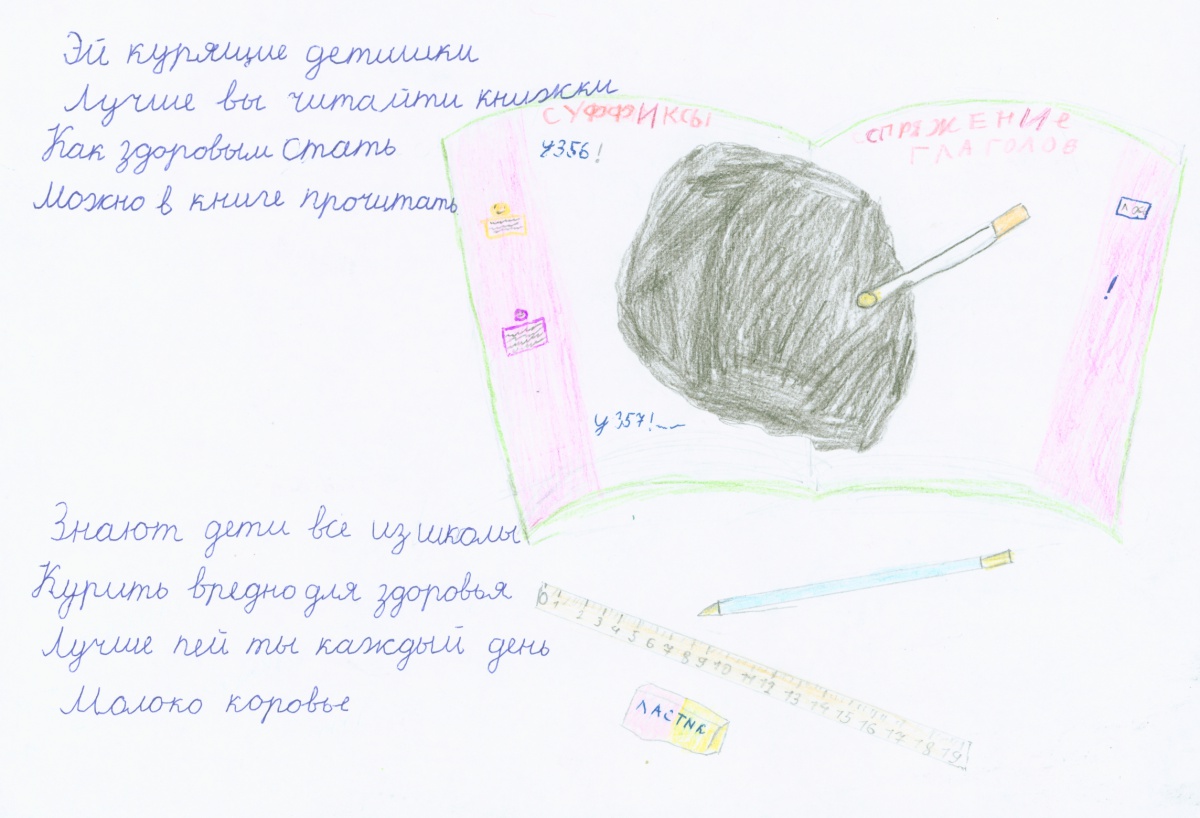 Эй курящие детишки
Лучше вы читайти книжки
Как здоровым стать
Можно в книге прочитать
СУФФИКСЫ
У356!
СПРЯЖЕНИе
ГЛАГОЛОВ
!
У357!
Знают дети все из школы
Курить вредно для здоровья
Лучше пей ты каждый день
Молоко коровье
0 1 2 3 4 5 6 7 8 9 10 11 12 13 14 15 16 17 18 19
ЛАСТИК